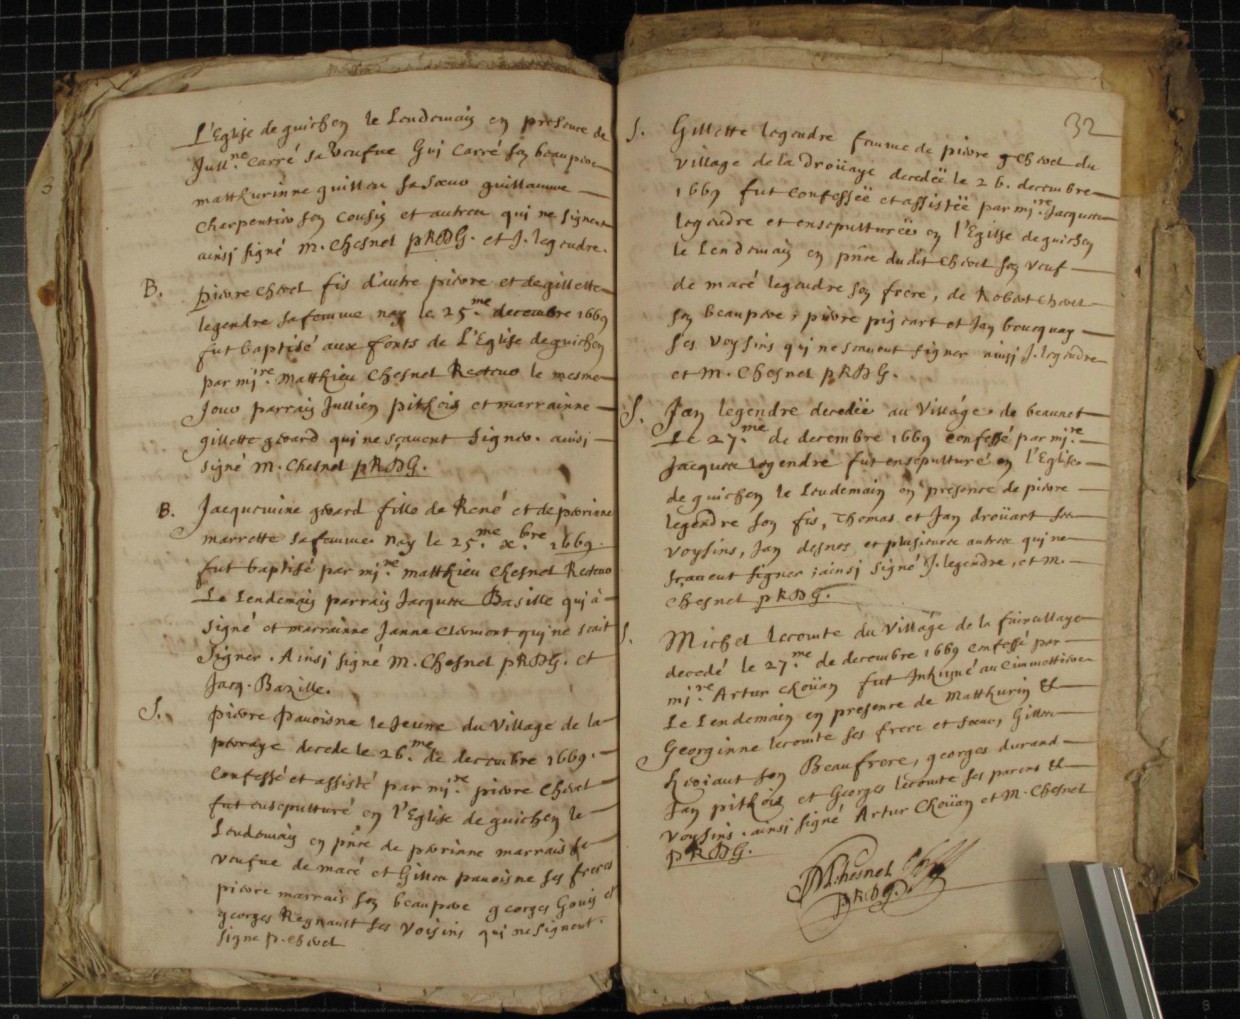 L'Eglise de guichen le Lendemain en presence de
Jull.ne Carré sa veufue Gui Carré son beaupere
matthurinne guillou sa sœur guillaume
charpentier son Cousin et autres qui ne signent
ainsi signé M. Chesnel pRDG. et J. legendre.
B. pierre chevel fis d'autre pierre et de gillette
legendre sa femme nay le 25.me decembre 1669
fut baptisé aux fonts de L'Eglise de guichen
par mi.re Matthieu Chesnel Recteur le mesme
Jour parrain Jullien pithois et marrainne
gillette gerard qui ne sçauent signer. ainsi
signé M. Chesnel pRDG.
B. Jacquemine gerard fille de René et de perrinne
marrette sa femme nay le 25.me x.bre 1669.
fut baptisé par mi.re matthieu Chesnel Recteur
Le Lendemain parrain Jacques Basille qui à
signé et marrainne Janne Clermont qui ne scait
signer. Ainsi signé M. Chesnel pRDG. et
Jacq. Bazille.
S. pierre pauoisne le Jeune du Village de la
decede le 26.me de decembre 1669.
Confessé et assisté par mi.re pierre Chevel
fut ensepulturé en l'Eglise de guichen le
Lendemain en pñce de perrinne marrais sa
veufue de macé et Gilles pauoisne ses freres
pierre marrais son beaupere georges Gouin et
georges Regnault ses Voisins qui ne signent.
signe p. chevel
32
S. Gillette legendre femme de pierre chevel du
village de la Droüaye decedëë le 26. decembre
1669 fut Confessëë et assistëë par mi.re Jacques
legendre et ensepulturëë en l'Eglise de guichen
le Lendemain en pñce dudit Chevel son veuf
de macé legendre son frere, de Robert chevel
son beaupere, pierre et Jan bocquay
ses voysins qui ne scauent signer ainsi J. legendre
et M. Chesnel pRDG.
S. Jan legendre decedëë au Village de beaunet
Le 27.me de decembre 1669 confessé par mi.re
Jacques legendre fut ensepulturé en l'Eglise
de guichen le Lendemain en presence de pierre
legendre son fis, Thomas et Jan droüart ses
voysins, Jan desnos et plusieurs autres qui ne
sçauent signer ; ainsi signé J. legendre, et M.
Chesnel pRDG.
S. Michel Lecomte du Village de la
decedé le 27.me de decembre 1669 confessé par
mi.re Artur Choüan fut Inhumé au Cimmettiere
Le Lendemain en presence de Matthurin &
Georginne lecomte ses frere et sœur, Gilles
son Beaufrere, georges durand
Jan pithois et Georges lecomte ses parens &
voysins. ainsi signé Artur Choüan et M. Chesnel
pRDG.
M. Chesnel
pRDG.